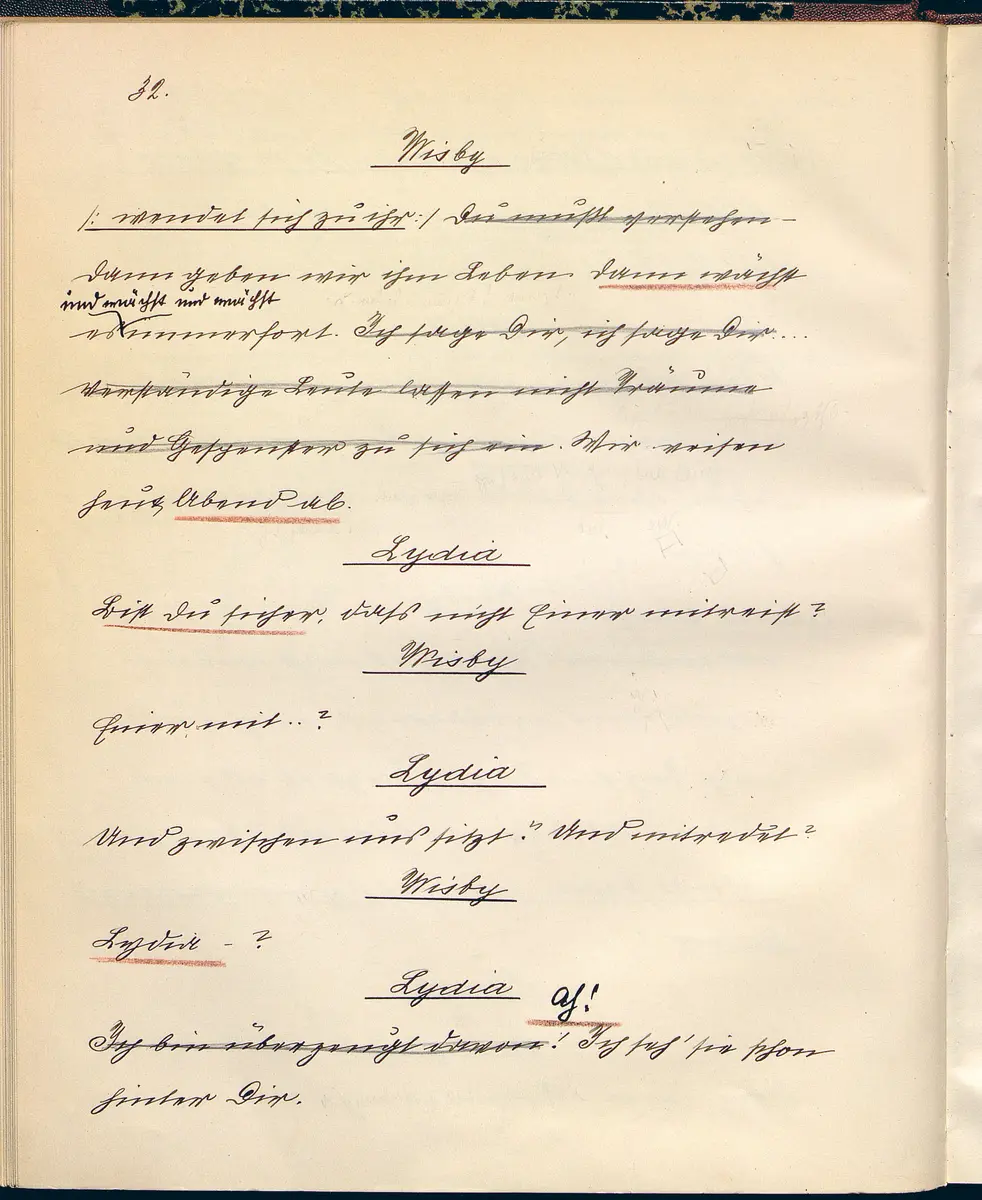 32.
Wisby
/: wendet sich zu ihr :/ Du mußt verstehen –
dann geben wir ihm Leben. dann wächst
und wächst und wächst
es immerfort. Ich sage Dir, ich sage Dir....
Verständige Leute lassen nicht Träume
und Gespenster zu sich ein. Wir reisen
heut Abend ab.
Lydia
Bist Du sicher, dass nicht Einer mitreist?
Wisby
Einer mit..?
Lydia
Und zwischen uns sitzt? Und mitredet?
Wisby
Lydia – ?
Lydia
Ah!
Ich bin überzeugt davon! Ich seh' sie schon
hinter Dir.